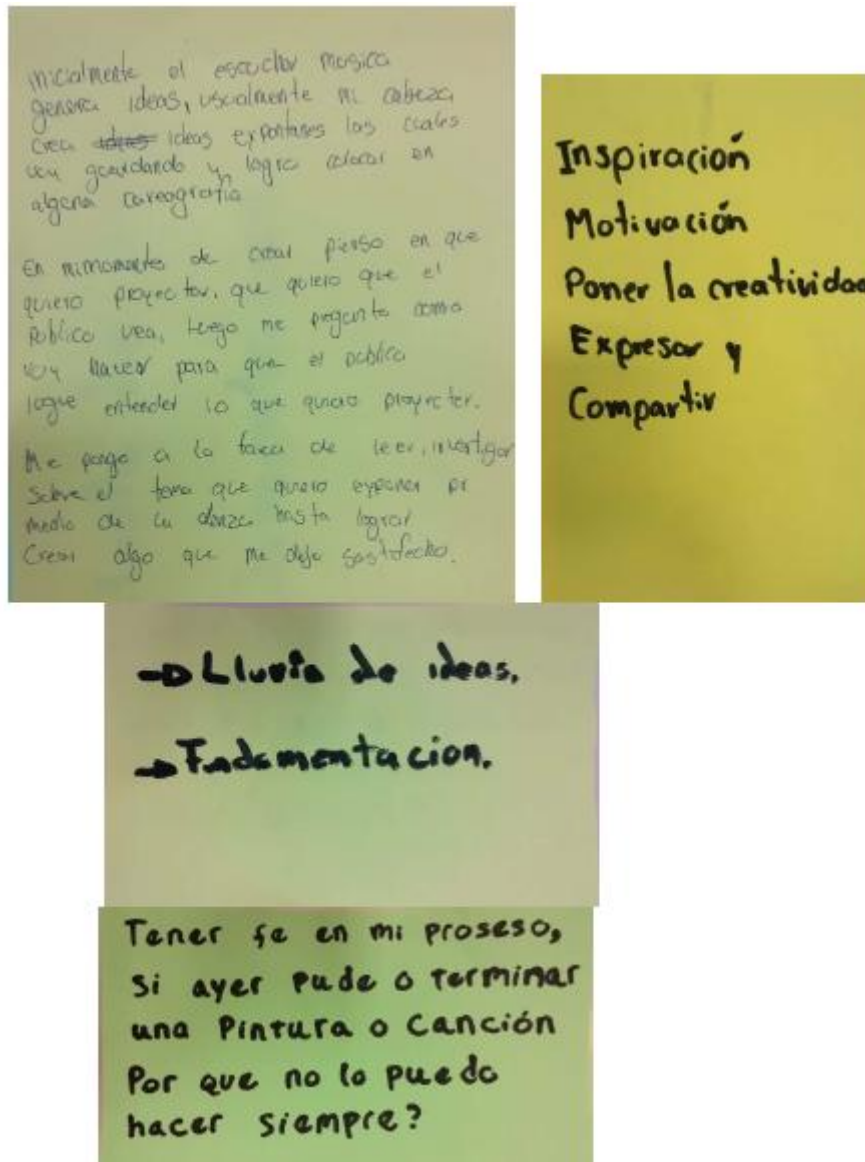 inicialmente el escuchar musica
genera ideas, usualmente mi cabeza
crea ideas expontanes las cuales
voy guardando y logro colocar en
alguna coreografia
En mimomentos de crear pienso en que
quiero proyectar, que quiero que el
Publico vea, luego me pregunto como
voy hacer para que el publico
logre entender lo que quiero proyectar.
Me pongo a la tarea de leer, investigar
sobre el tema que quiero exponer por
medio de la danza hasta lograr
crear algo que me deje sastifecho.
Inspiración
Motivación
Poner la creatividad
Expresar y
Compartir
→ Lluvia de ideas.
→ Fundamentacion.
Tener fe en mi proseso,
si ayer pude o terminar
una Pintura o Canción
Por que no lo puedo
hacer siempre?